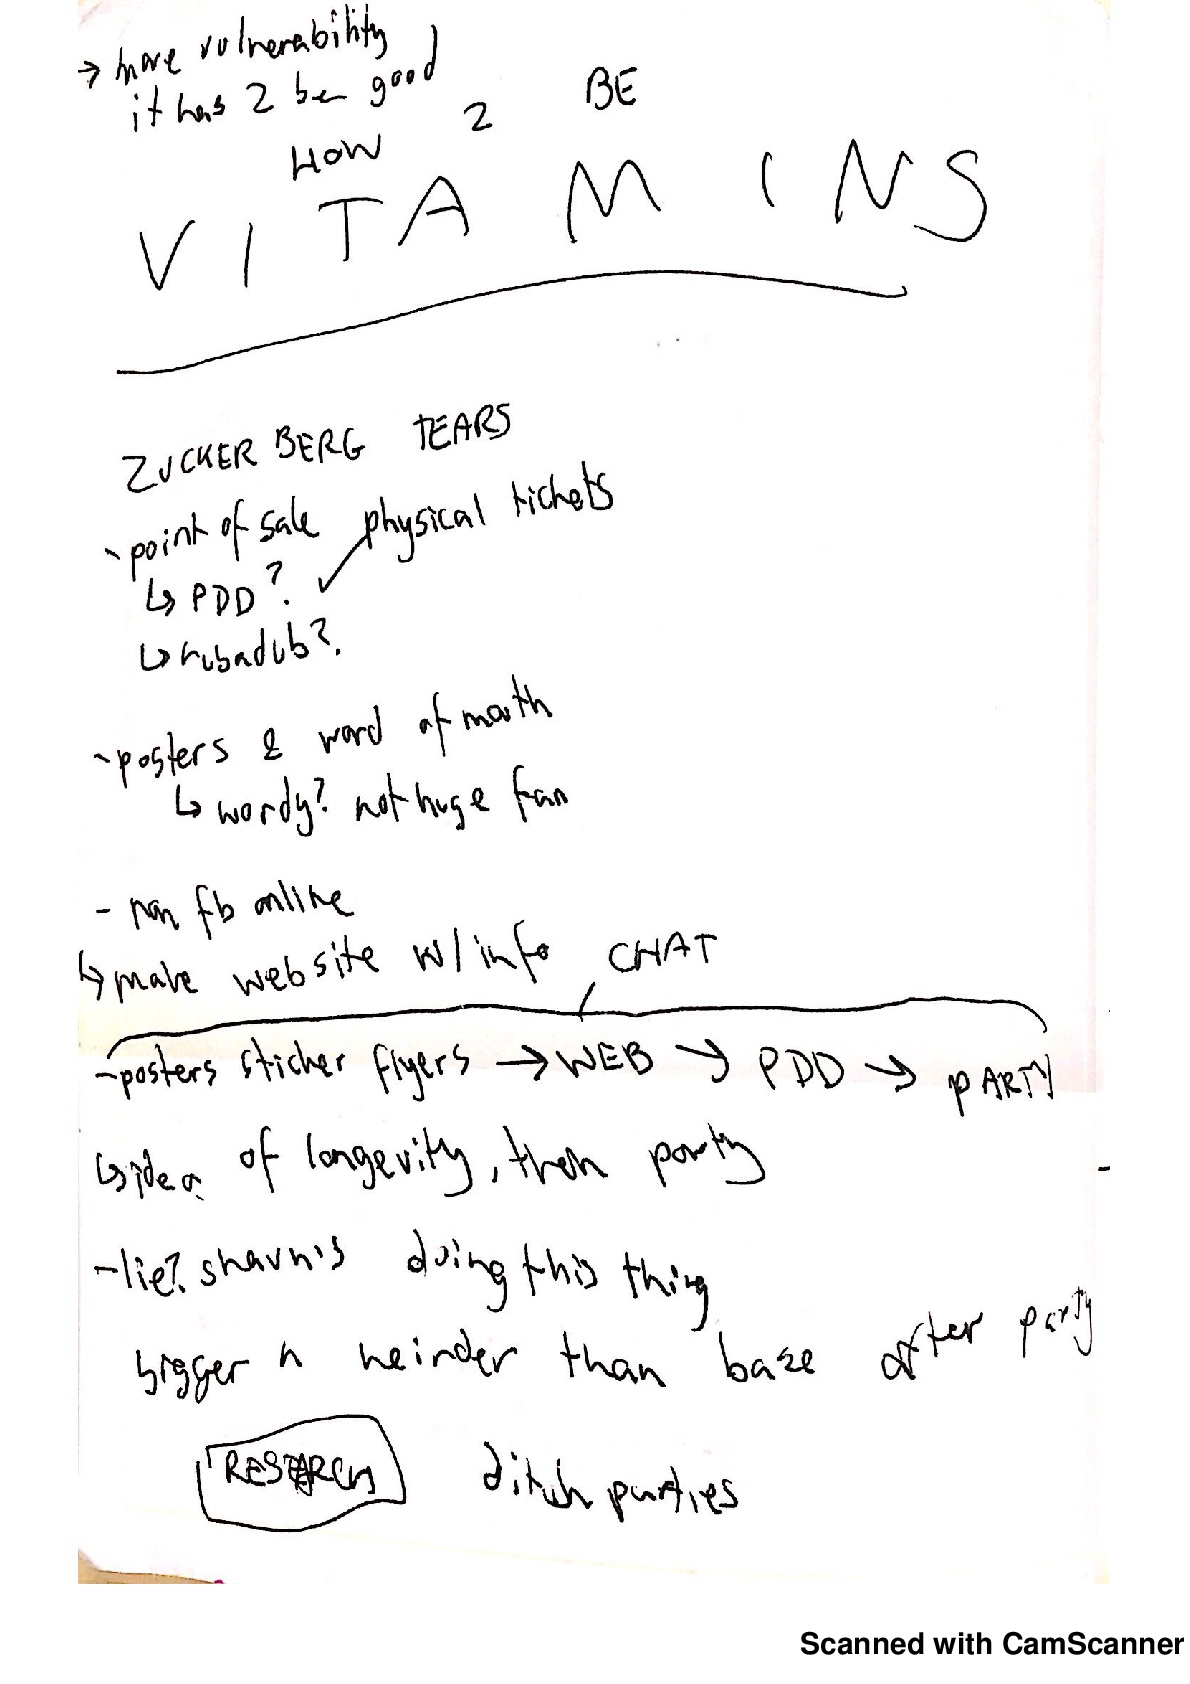 → more vulnerability
it has 2 be good
HOW 2 BE
VITAMINS
ZUCKERBERG TEARS
- point of sale physical tickets
↳ PDD? ✓
↳ rubadub?
- posters & word of mouth
↳ wordy? not huge fan
- non fb online
↳ make website w/ info CHAT
- posters sticker flyers → WEB → PDD → PARTY
↳ idea of longevity, then party
- lie? shaun's doing this thing
bigger n heinder than base after party
RESEARCH ditch parties
Scanned with CamScanner